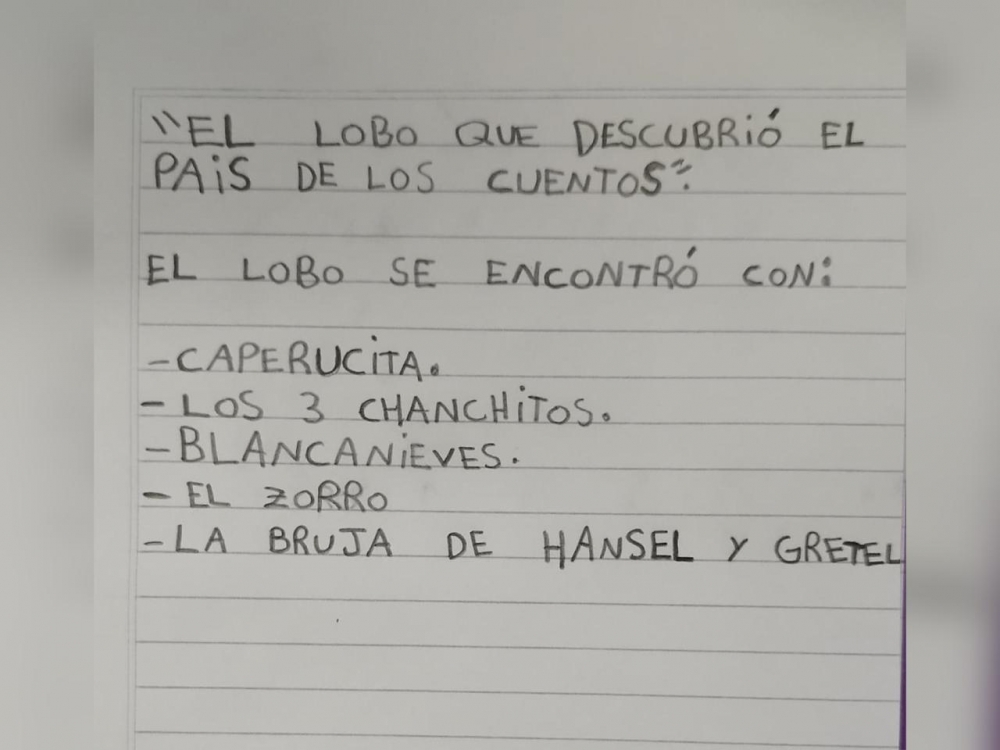 "EL LOBO QUE DESCUBRIÓ EL
PAiS DE LOS CUENTOS":
EL LOBO SE ENCONTRÓ CON:
-CAPERUCiTA.
- LOS 3 CHANCHiTOS.
-BLANCANiEVES.
- EL ZORRO
-LA BRUJA DE HANSEL Y GRETEL